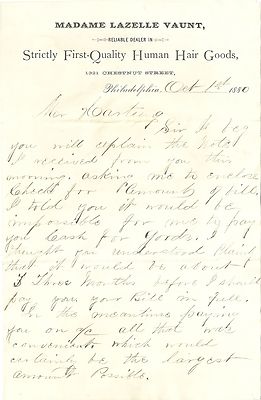 MADAME LAZELLE VAUNT,
RELIABLE DEALER IN
Strictly First-Quality Human Hair Goods,
1321 CHESTNUT STREET,
Philadelphia, Oct 1st 1880
Mr Hastings
Sir I beg
you will explain the note
I received from you this
morning. asking me to enclose
Check for Amount of bill.
I told you it would be
impossible for me to pay
you Cash for Goods. I
thought you understood
that it would be about
Three Months before I should
pay you your Bill in full.
In the meantime paying
you on a/c all that was
convenient which would
certainly be the largest
amount Possible.